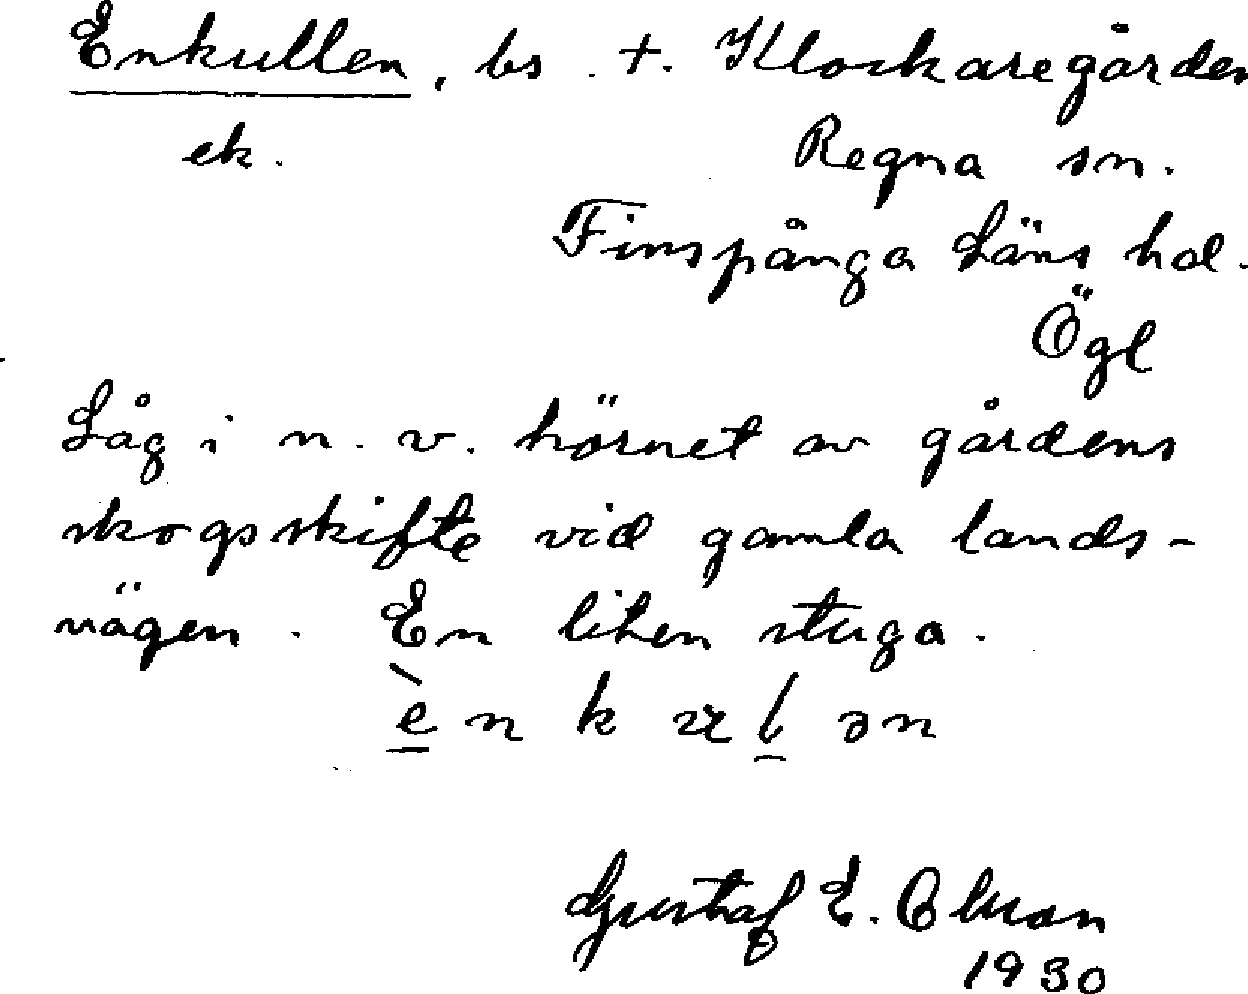 Enkullen, bs. +. Klockaregården
ek. Regna sn.
Finspånga Läns hd.
Ögl
Låg i n. v. hörnet av gårdens
skogsskifte vid gamla lands-
vägen. En liten stuga.
èn k ɯl ən
Gustaf E.
1930